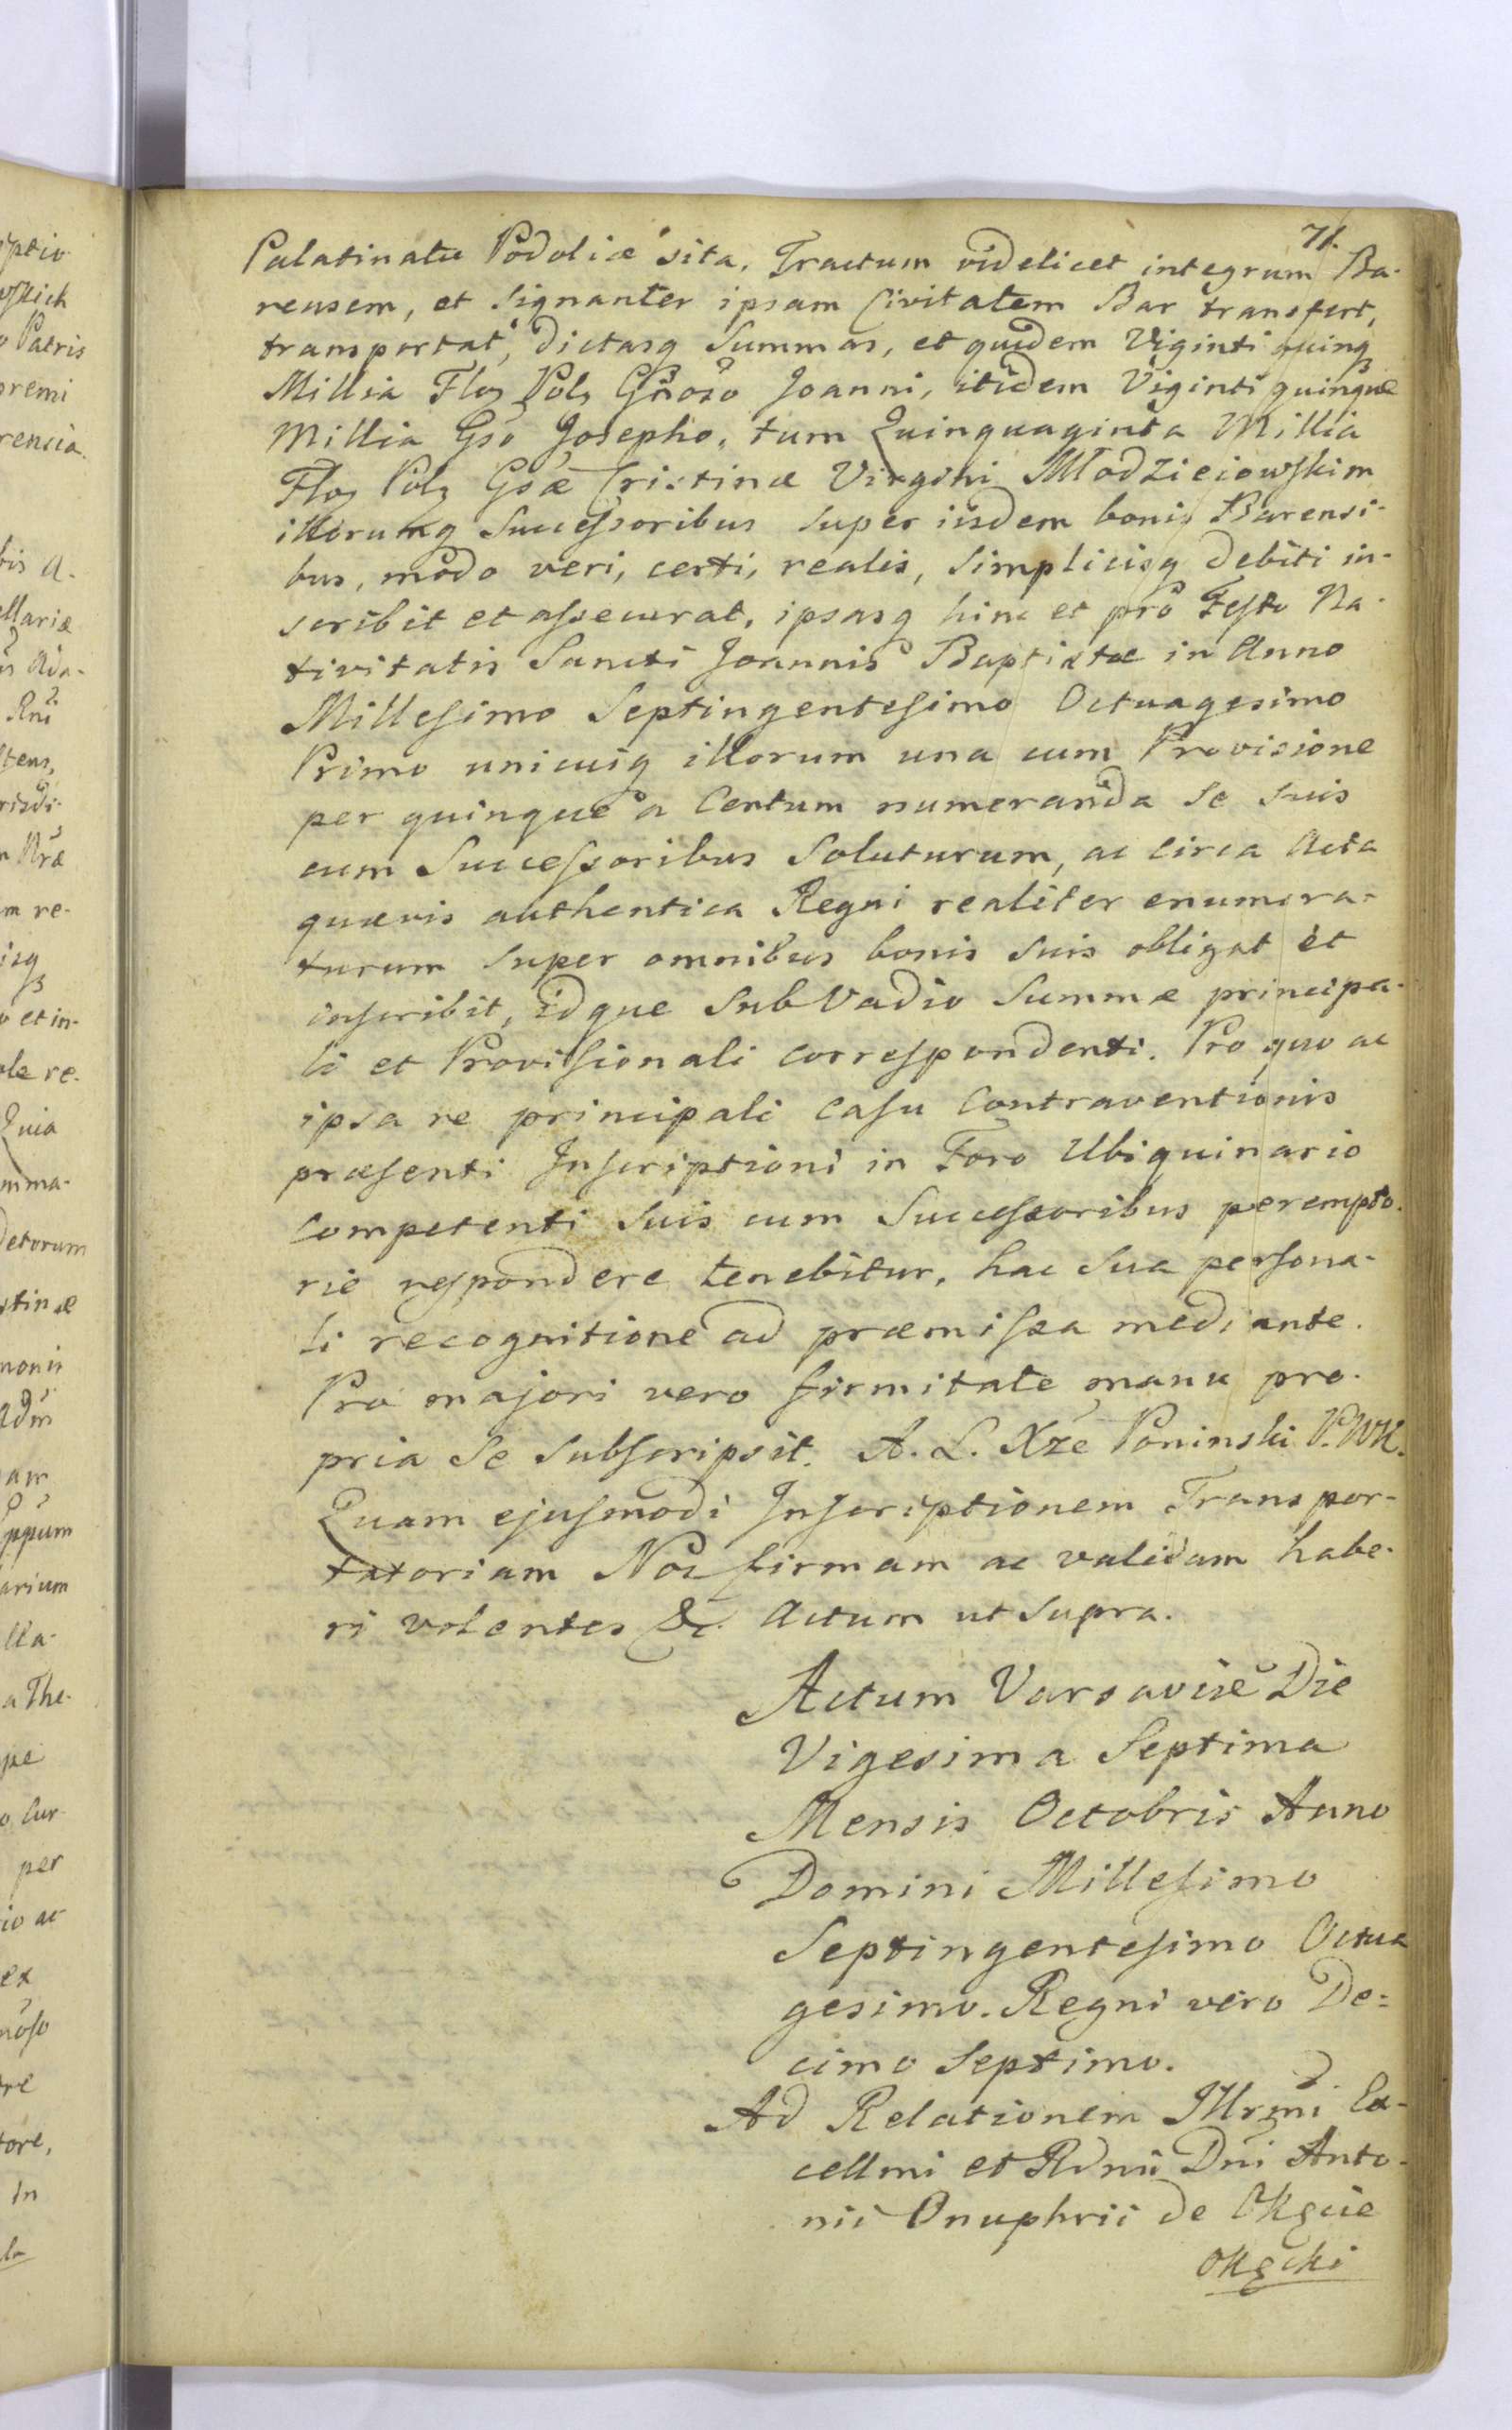 71.
Palatinatu Podoliæ sita. Tractum videlicet integrum Ba-
rensem, et signanter ipsam Civitatem Bar transfert,
transportat, dictasq Summas, et quidem Viginti quinq
Millia Floz Polz Gñoso Joanni, itidem Viginti quinque
Millia Gso Josepho, tum Quinquaginta Millia
Floz Polz Gsæ Cristinæ Virgini Młodzieiowskim
illorumq Successoribus super iisdem bonis Barensi-
bus, modo veri, certi, realis, simplicisq debiti in-
scribit et assecurat, ipsasq hinc et pro Festo Na-
tivitatis Sancti Joannis Baptistæ in Anno
Millesimo Septingentesimo Octuagesimo
Primo unicuiq illorum una cum Provisione
per quinque a Centum numeranda se suis
cum Successoribus soluturum, ac circa Acta
quævis authentica Regni realiter enumera-
turum super omnibus bonis suis obligat et
inscribit, idque sub Vadio Summæ principa-
li et Provisionali correspondenti. Pro quo ac
ipsa re principali casu Contraventionis
præsenti Inscriptioni in Foro Ubiquinario
competenti suis cum Successoribus perempto-
rie respondere tenebitur, hac sua persona-
li recognitione ad præmissa mediante.
Pro majori vero firmitate manu pro-
pria se subscripsit. A. L. Xże Poninski P.WK.
Quam ejusmodi Inscriptionem Transpor-
tatoriam Nos firmam ac validam habe-
ri volentes &c. Actum ut supra.
Actum Varsaviæ Die
Vigesima Septima
Mensis Octobris Anno
Domini Millesimo
Septingentesimo Octua
gesimo. Regni vero De=
cimo Septimo.
Ad Relationem Illrmi Ex-
cellmi et Rdmi Dni Anto-
nii Onuphrii de Okęcie
Okęcki